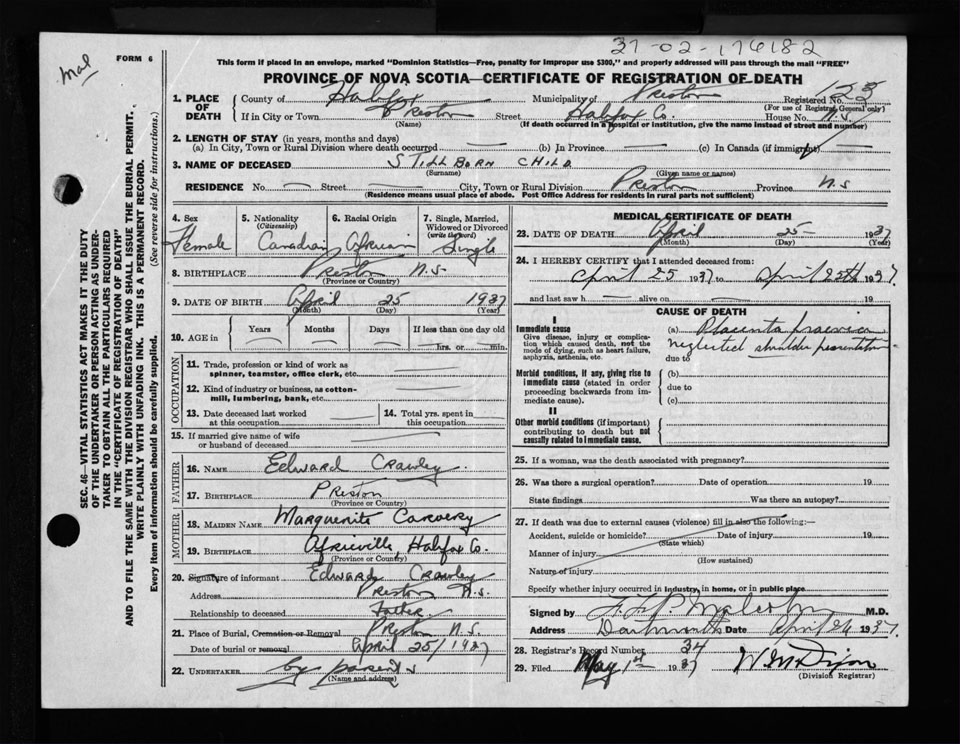 37-02-176182
Mal
FORM 6
This form if placed in an envelope, marked "Dominion Statistics—Free, penalty for improper use $300," and properly addressed will pass through the mail "FREE"
PROVINCE OF NOVA SCOTIA—CERTIFICATE OF REGISTRATION OF DEATH
1. PLACE OF DEATH
County of Halifax Municipality of Preston Registered No. 123
(For use of Registrar General only)
If in City or Town Preston Street Halifax Co. House No. N.S.
(Name) (If death occurred in a hospital or institution, give the name instead of street and number)
2. LENGTH OF STAY (in years, months and days)
(a) In City, Town or Rural Division where death occurred — (b) In Province — (c) In Canada (if immigrant) —
3. NAME OF DECEASED STILL BORN CHILD
(Surname) (Given name or names)
RESIDENCE No. — Street — City, Town or Rural Division Preston Province N.S
(Residence means usual place of abode. Post Office Address for residents in rural parts not sufficient)
4. Sex 5. Nationality 6. Racial Origin 7. Single, Married,
(Citizenship) Widowed or Divorced
(write the word)
Female Canadian African Single
8. BIRTHPLACE Preston N.S.
(Province or Country)
9. DATE OF BIRTH April 25 1937
(Month) (Day) (Year)
10. AGE in Years Months Days If less than one day old
hrs. or min.
OCCUPATION
11. Trade, profession or kind of work as
spinner, teamster, office clerk, etc.
12. Kind of industry or business, as cotton-
mill, lumbering, bank, etc.
13. Date deceased last worked 14. Total yrs. spent in
at this occupation this occupation
15. If married give name of wife
or husband of deceased
FATHER
16. NAME Edward Crawley
17. BIRTHPLACE Preston
(Province or Country)
MOTHER
18. MAIDEN NAME Marguerite
19. BIRTHPLACE Africville, Halifax Co.
(Province or Country)
20. Signature of informant Edward Crawley
Address Preston N.S.
Relationship to deceased Father
21. Place of Burial, Cremation or Removal Preston N.S.
Date of burial or removal April 25/1937
22. UNDERTAKER by parents
(Name and address)
MEDICAL CERTIFICATE OF DEATH
23. DATE OF DEATH April 25 1937
(Month) (Day) (Year)
24. I HEREBY CERTIFY that I attended deceased from:
April 25 1937 to April 25th 1937
and last saw h — alive on — 19
CAUSE OF DEATH
I
Immediate cause
Give disease, injury or complica-
tion which caused death, not the
mode of dying, such as heart failure,
asphyxia, asthenia, etc.
(a) Placenta praevia
neglected shoulder presentation
due to
Morbid conditions, if any, giving rise to
immediate cause (stated in order
proceeding backwards from im-
mediate cause).
(b)
due to
(c)
II
Other morbid conditions (if important)
contributing to death but not
causally related to immediate cause.
25. If a woman, was the death associated with pregnancy?
26. Was there a surgical operation? Date of operation 19
State findings Was there an autopsy?
27. If death was due to external causes (violence) fill in also the following:
Accident, suicide or homicide? Date of injury 19
(State which)
Manner of injury
(How sustained)
Nature of injury
Specify whether injury occurred in industry, in home, or in public place
Signed by Malcolm M.D.
Address Dartmouth Date April 26 1937.
28. Registrar's Record Number 34
29. Filed May 1st 1937
(Division Registrar)
SEC. 46—VITAL STATISTICS ACT MAKES IT THE DUTY
OF THE UNDERTAKER OR PERSON ACTING AS UNDER-
TAKER TO OBTAIN ALL THE PARTICULARS REQUIRED
IN THE "CERTIFICATE OF REGISTRATION OF DEATH"
AND TO FILE THE SAME WITH THE DIVISION REGISTRAR WHO SHALL ISSUE THE BURIAL PERMIT.
WRITE PLAINLY WITH UNFADING INK. THIS IS A PERMANENT RECORD.
Every item of information should be carefully supplied. (See reverse side for instructions.)